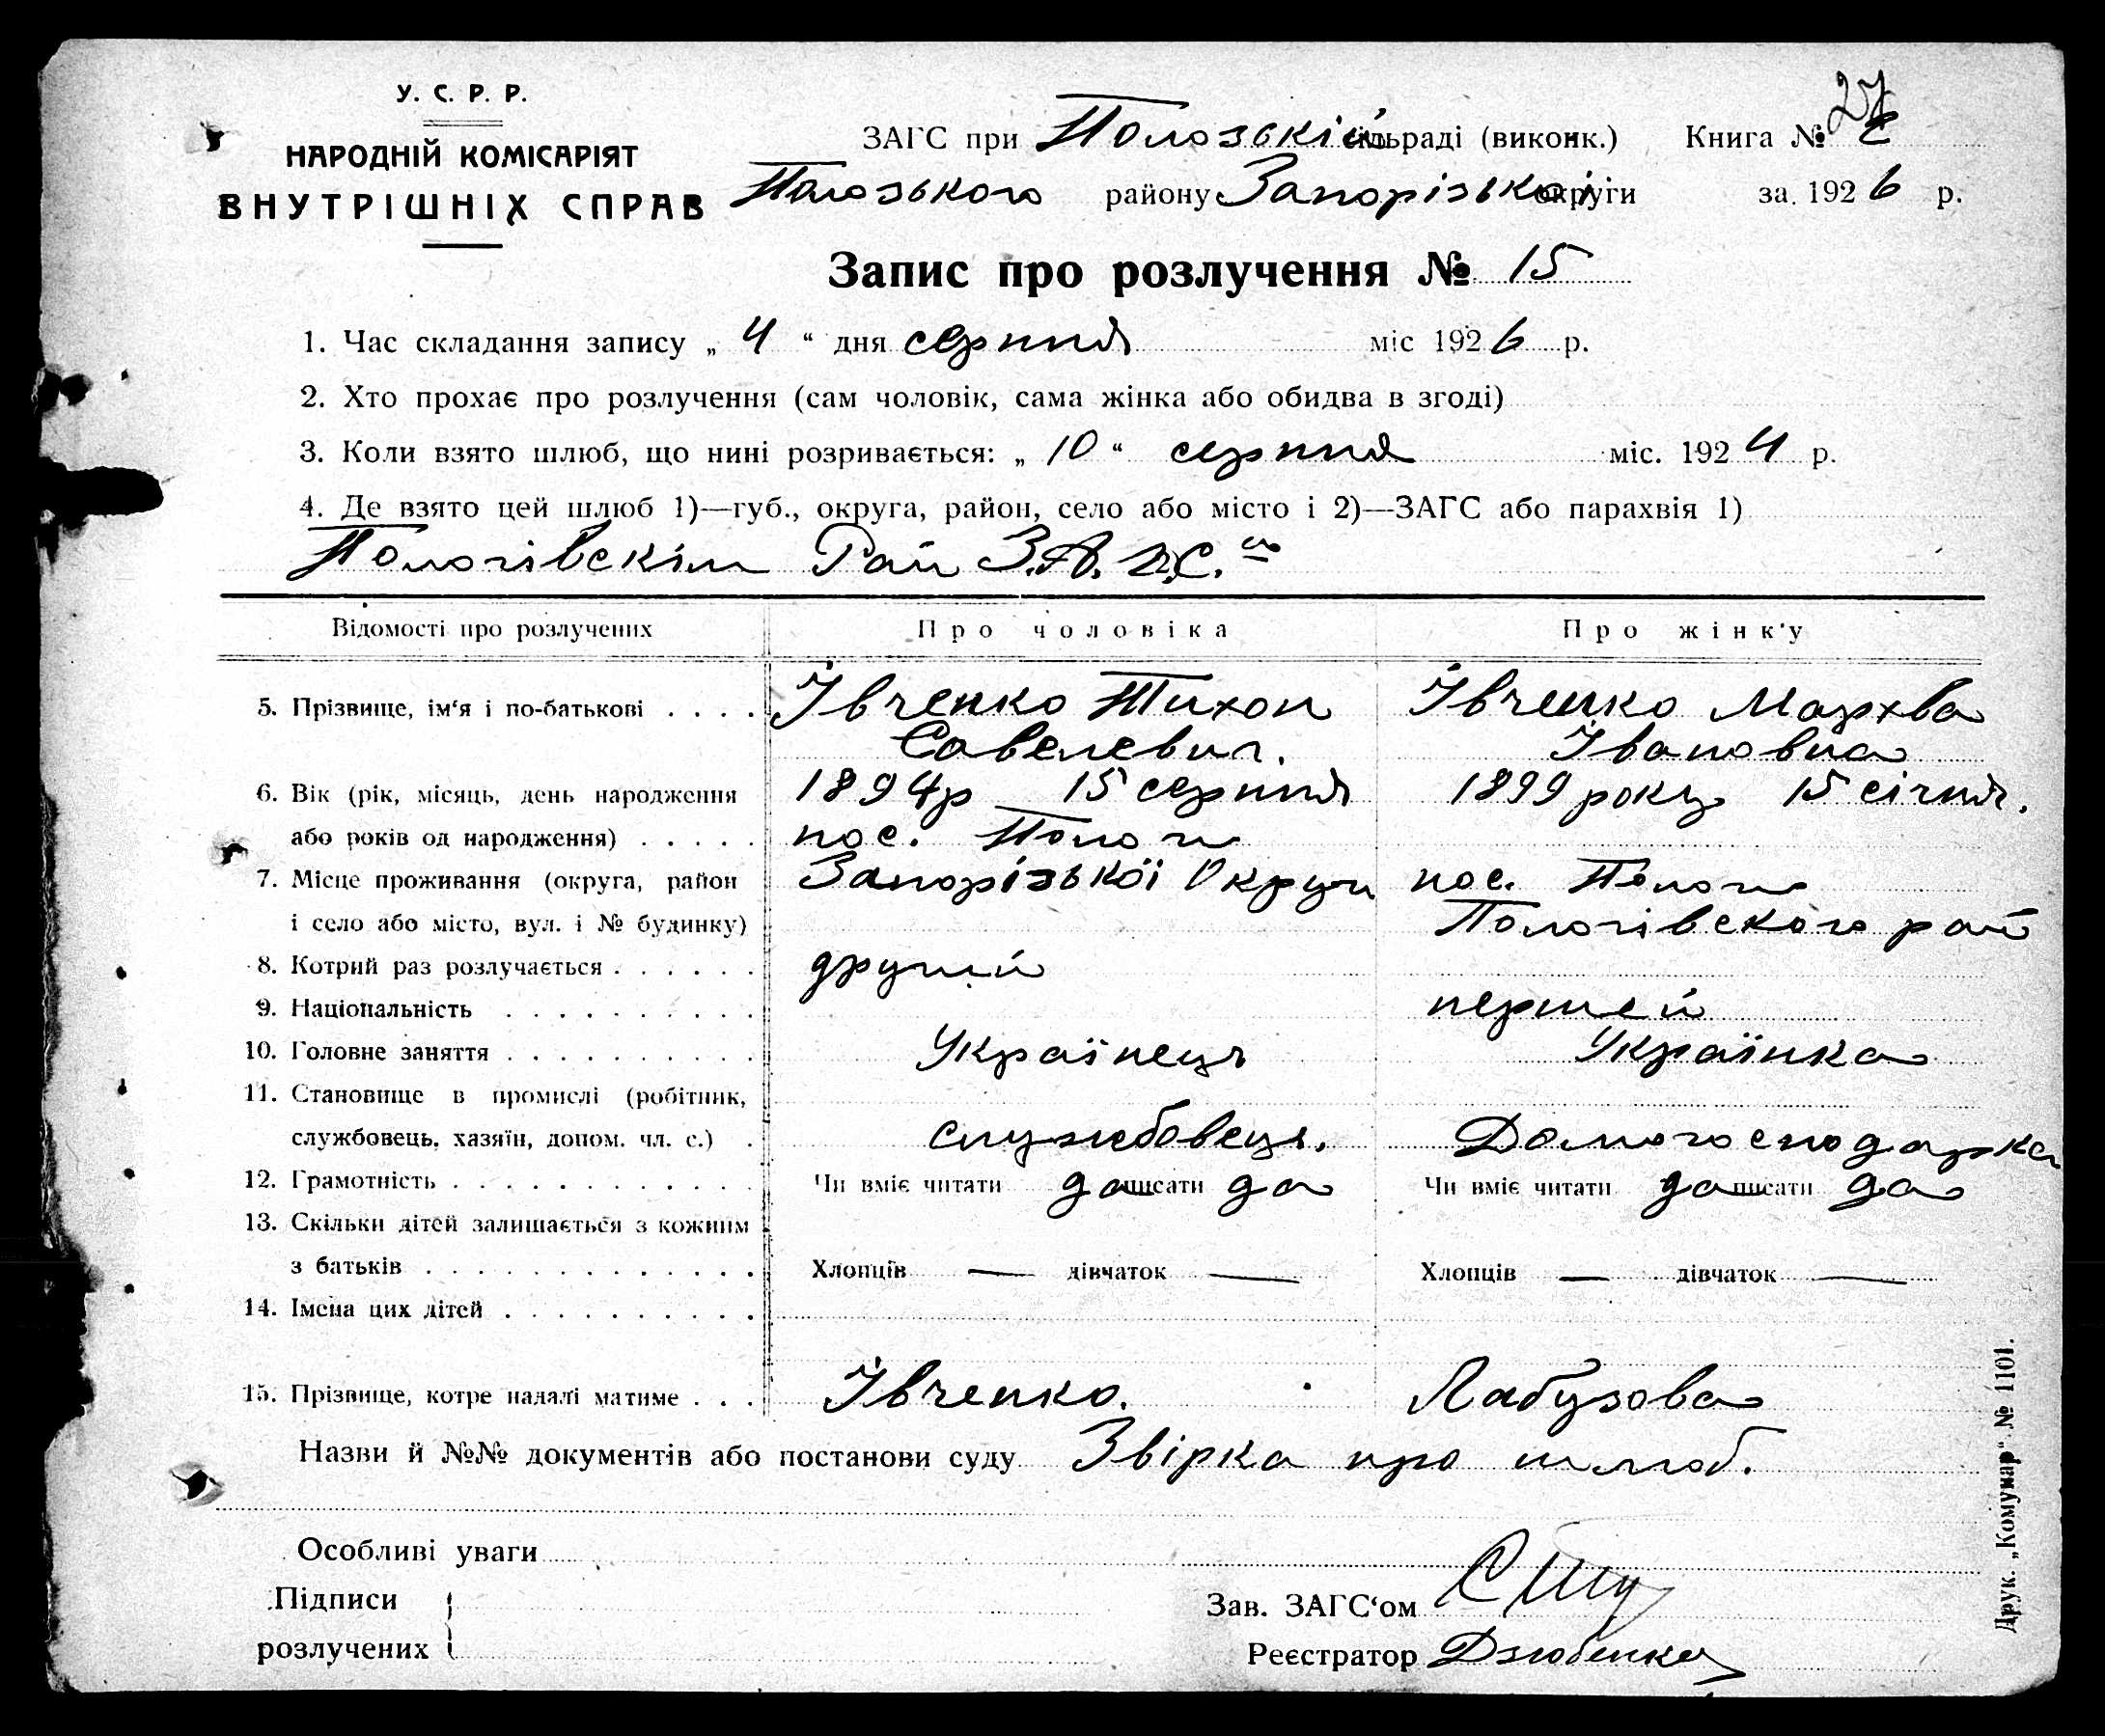 У. С. Р. Р.
НАРОДНІЙ КОМІСАРІЯТ
ВНУТРІШНІХ СПРАВ
27
ЗАГС при Полозській сільраді (виконк.) Книга №
Полозського району Запорізької округи за 1926 р.
Запис про розлучення № 15
1. Час складання запису „ 4 “ дня серпня міс 1926 р.
2. Хто прохає про розлучення (сам чоловік, сама жінка або обидва в згоді)
3. Коли взято шлюб, що нині розривається: „ 10 “ серпня міс. 1924 р.
4. Де взято цей шлюб 1)—губ., округа, район, село або місто і 2)—ЗАГС або парахвія 1)
Пологівскім Рай З.А.Г.С.ом
Відомості про розлучених Про чоловіка Про жінку
5. Прізвище, ім‘я і по-батькові . . . . Івченко Тихон Івченко Мархва
Савелевич. Івановна
6. Вік (рік, місяць, день народження 1894р 15 серпня 1899 року 15 січня.
або років од народження) . . . . . пос. Пологи
7. Місце проживання (округа, район Запорізької Округи пос. Пологи
і село або місто, вул. і № будинку) Пологівского рай
8. Котрий раз розлучається . . . . . . другий
9. Національність . . . . . . . . . . першей
10. Головне заняття . . . . . . . . . . Українець Українка
11. Становище в промислі (робітник,
службовець, хазяїн, допом. чл. с.) . службовець. Домогосподарка
12. Грамотність . . . . . . . . . . . . Чи вміє читати да писати да Чи вміє читати да писати да
13. Скільки дітей залишається з кожним
з батьків . . . . . . . . . . . . . Хлопців — дівчаток — Хлопців — дівчаток —
14. Імена цих дітей . . . . . . . . . .
15. Прізвище, котре надалі матиме . . . Івченко. Лабузова
Назви й №№ документів або постанови суду Звірка про шлюб.
Особливі уваги
Підписи Зав. ЗАГС‘ом
розлучених Реєстратор Дзюбенко
Друк. „Комунар“ № 1101.